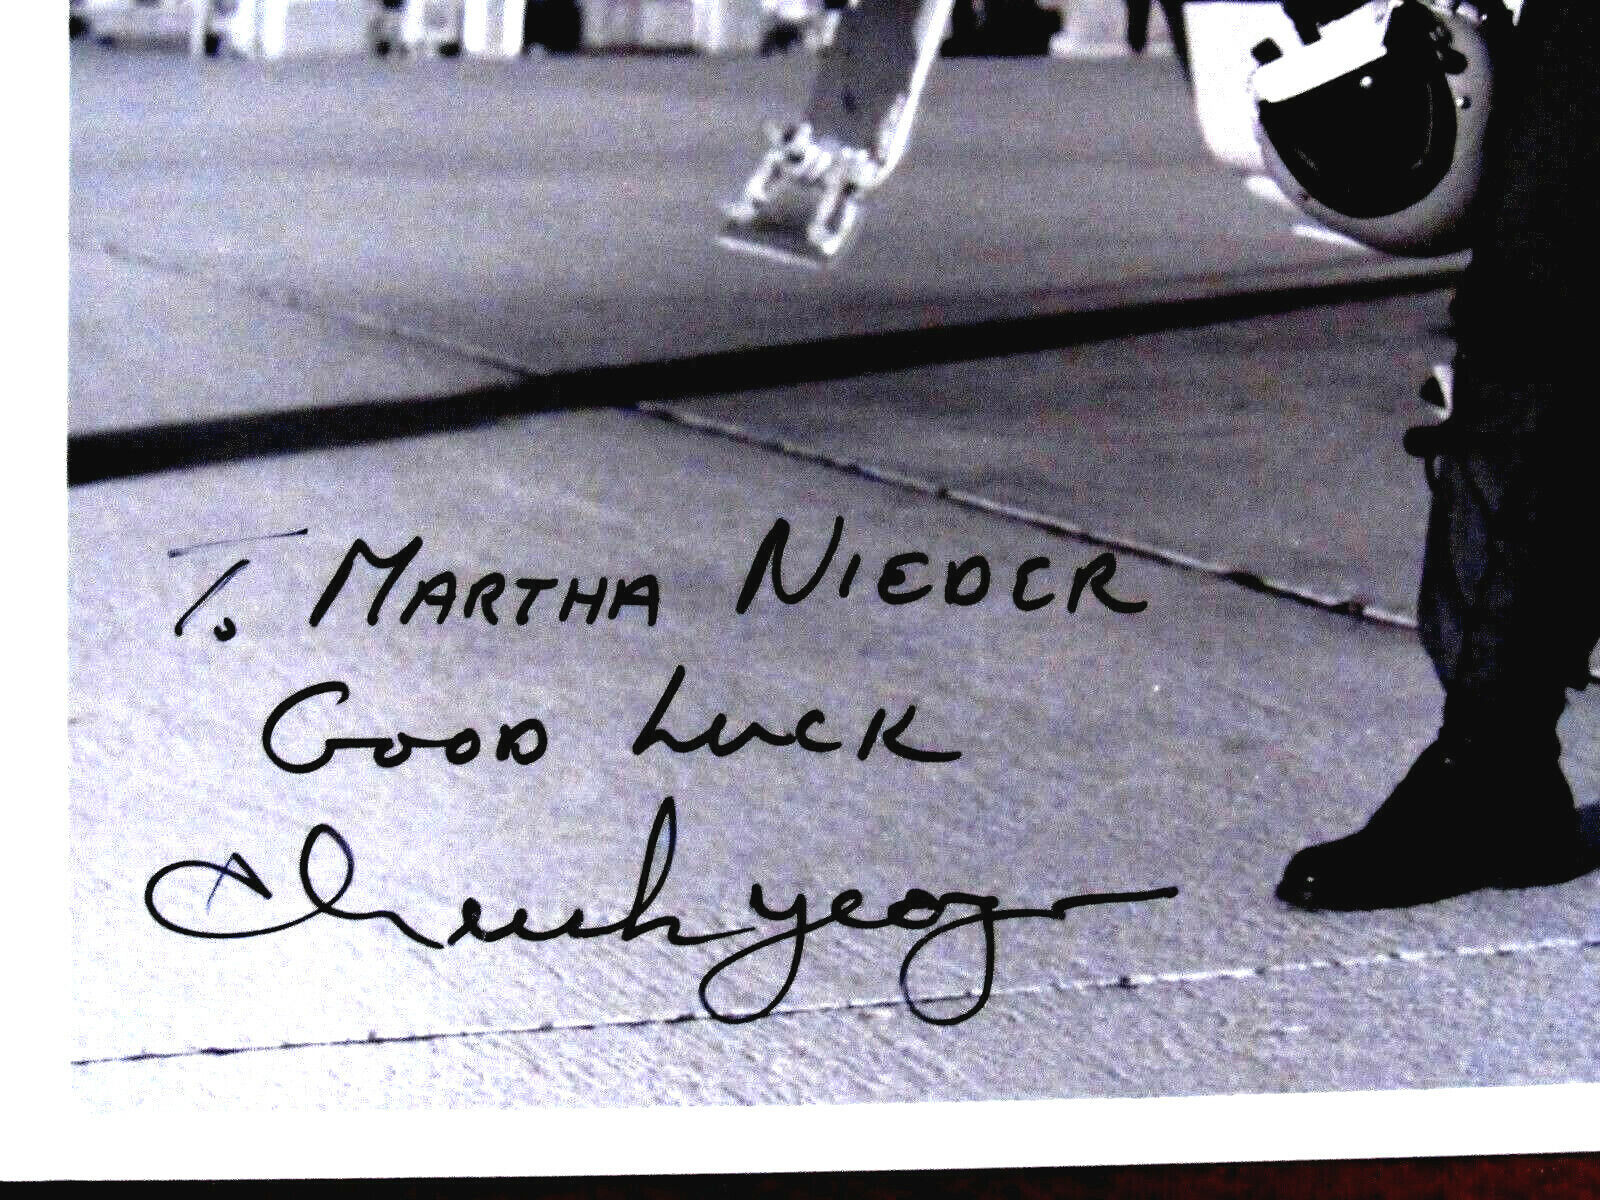 To MARTHA NIEDER
GOOD LUCK
Chuck Yeager